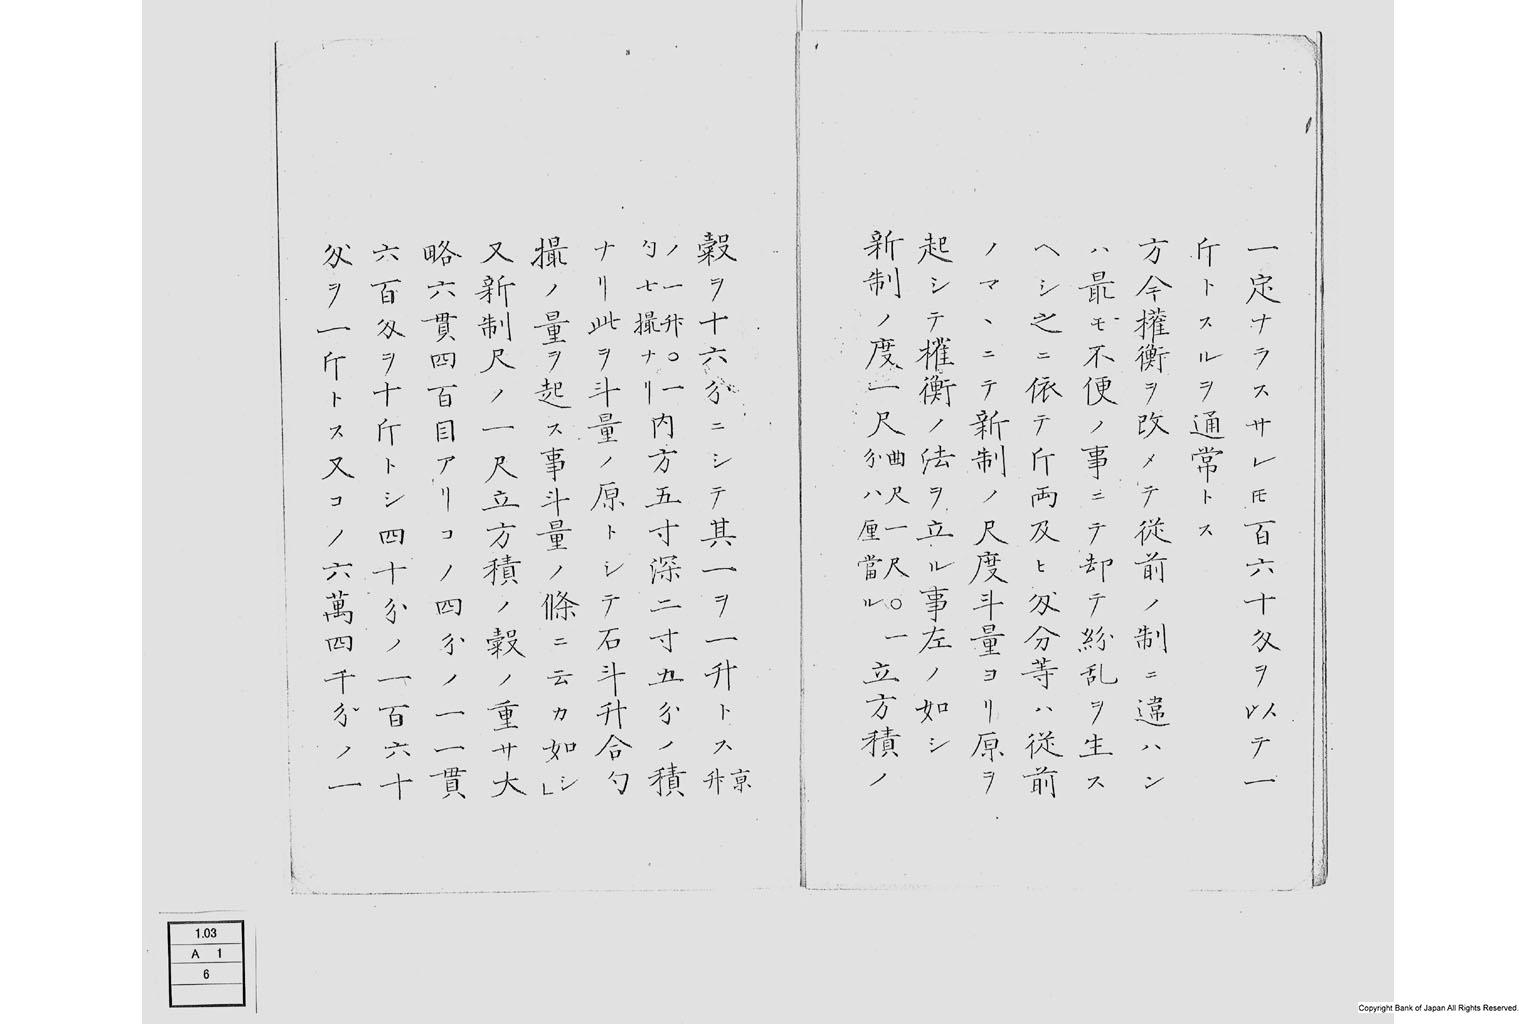 一定ナラスサレ𪜈百六十匁ヲ以テ一
斤トスルヲ通常トス
方今權衡ヲ改メテ從前ノ制ニ違ハン
ハ最モ不便ノ事ニテ却テ紛乱ヲ生ス
ヘシ之ニ依テ斤両及ヒ匁分等ハ從前
ノマヽニテ新制ノ尺度斗量ヨリ原ヲ
起シテ權衡ノ法ヲ立ル事左ノ如シ
新制ノ度一尺曲尺一尺〇一分ハ厘當ル立方積ノ
穀ヲ十六分ニシテ其一ヲ一升トス京升
ノ一升〇一勺七撮ナリ内方五寸深二寸五分ノ積
ナリ此ヲ斗量ノ原トシテ石斗升合勺
撮ノ量ヲ起ス事斗量ノ條ニ云カ如シ」
又新制尺ノ一尺立方積ノ穀ノ重サ大
略六貫四百目アリコノ四分ノ一一貫
六百匁ヲ十斤トシ四十分ノ一百六十
匁ヲ一斤トス又コノ六萬四千分ノ一
1.03
A 1
6
Copyright Bank of Japan All Rights Reserved.